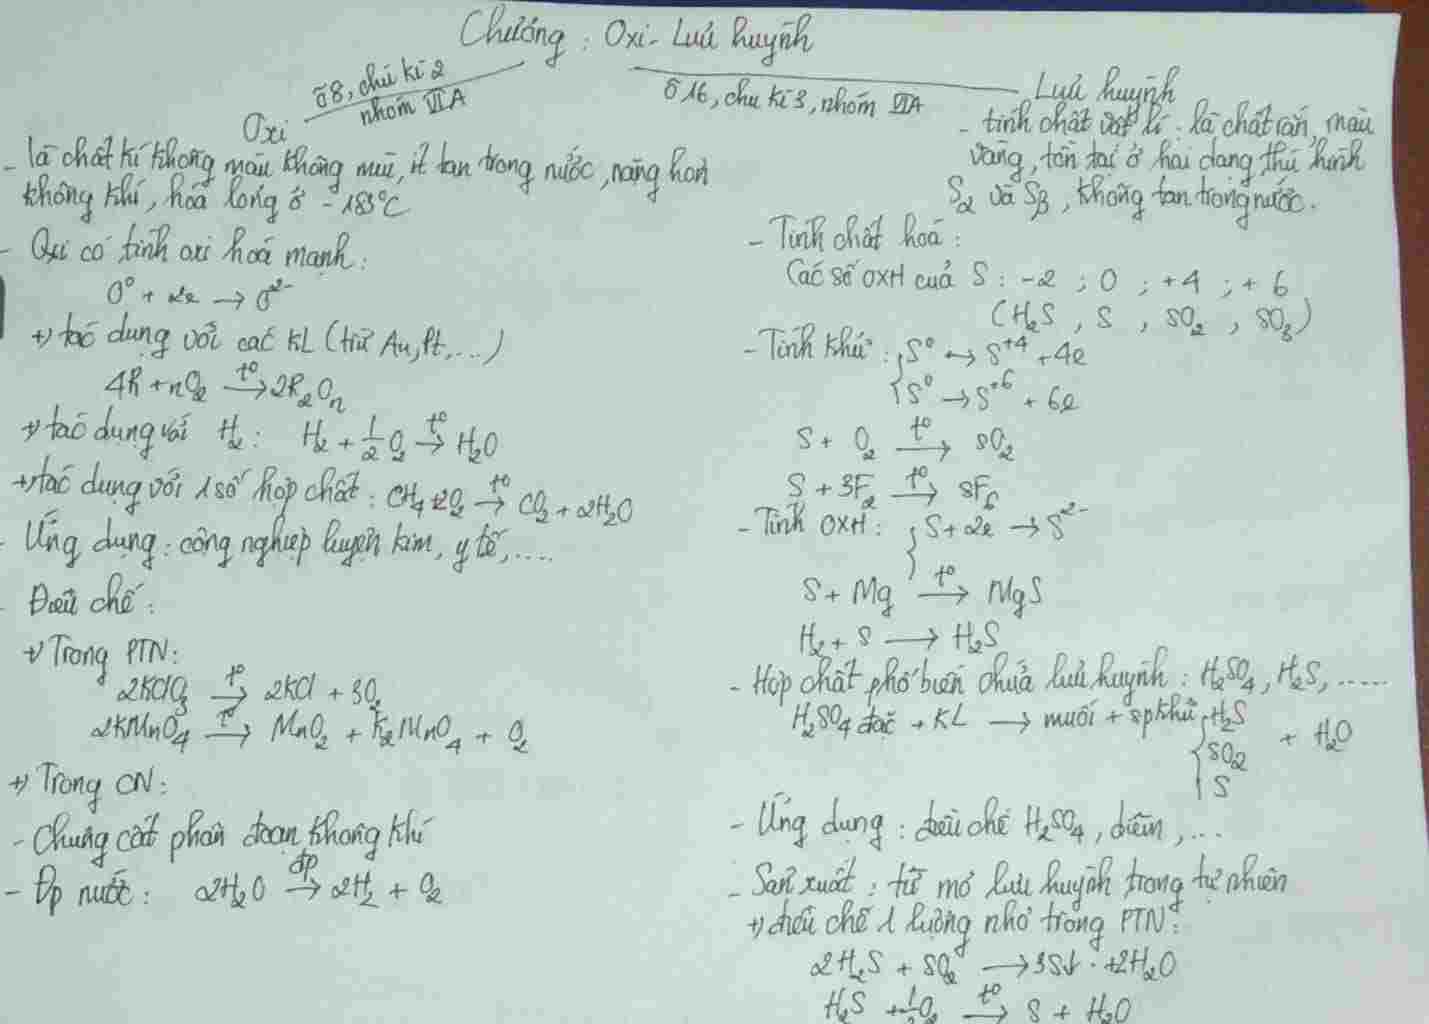 Chương: Oxi - Lưu huỳnh
ô8, chu kì 2
nhóm VIA
ô 16, chu kì 3, nhóm VIA
Oxi
- là chất kí không màu không mùi, ít tan trong nước, nặng hơn
không khí, hoá lỏng ở -183°C
- Oxi có tính oxi hoá mạnh:
O⁰ + 2e → O²⁻
+) tác dụng với các KL (trừ Au, Pt, ...)
4R + nO₂ →(t°) 2R₂Oₙ
+) tác dụng với H₂: H₂ + 1/2 O₂ →(t°) H₂O
+) tác dụng với 1 số hợp chất: CH₄ + 2O₂ →(t°) CO₂ + 2H₂O
- Ứng dụng: công nghiệp luyện kim, y tế, ....
- Điều chế:
+) Trong PTN:
2KClO₃ →(t°) 2KCl + 3O₂
2KMnO₄ →(t°) MnO₂ + K₂MnO₄ + O₂
+) Trong CN:
- Chưng cất phân đoạn không khí
- Đp nước: 2H₂O →(đp) 2H₂ + O₂
Lưu huỳnh
- tính chất vật lí: là chất rắn, màu
vàng, tồn tại ở hai dạng thù hình
Sα và Sβ, không tan trong nước.
- Tính chất hoá:
Các số OXH của S: -2 ; 0 ; +4 ; +6
(H₂S, S, SO₂, SO₃)
- Tính khử: { S⁰ → S⁺⁴ + 4e
S⁰ → S⁺⁶ + 6e
S + O₂ →(t°) SO₂
S + 3F₂ →(t°) SF₆
- Tính OXH: { S + 2e → S²⁻
S + Mg →(t°) MgS
H₂ + S → H₂S
- Hợp chất phổ biến chứa lưu huỳnh: H₂SO₄, H₂S, .....
H₂SO₄ đặc + KL → muối + sp khử { H₂S
SO₂ + H₂O
S
- Ứng dụng: điều chế H₂SO₄, diêm, ...
- Sản xuất: từ mỏ lưu huỳnh trong tự nhiên
+) điều chế 1 lượng nhỏ trong PTN:
2H₂S + SO₂ → 3S↓ + 2H₂O
H₂S + 1/2 O₂ →(t°) S + H₂O